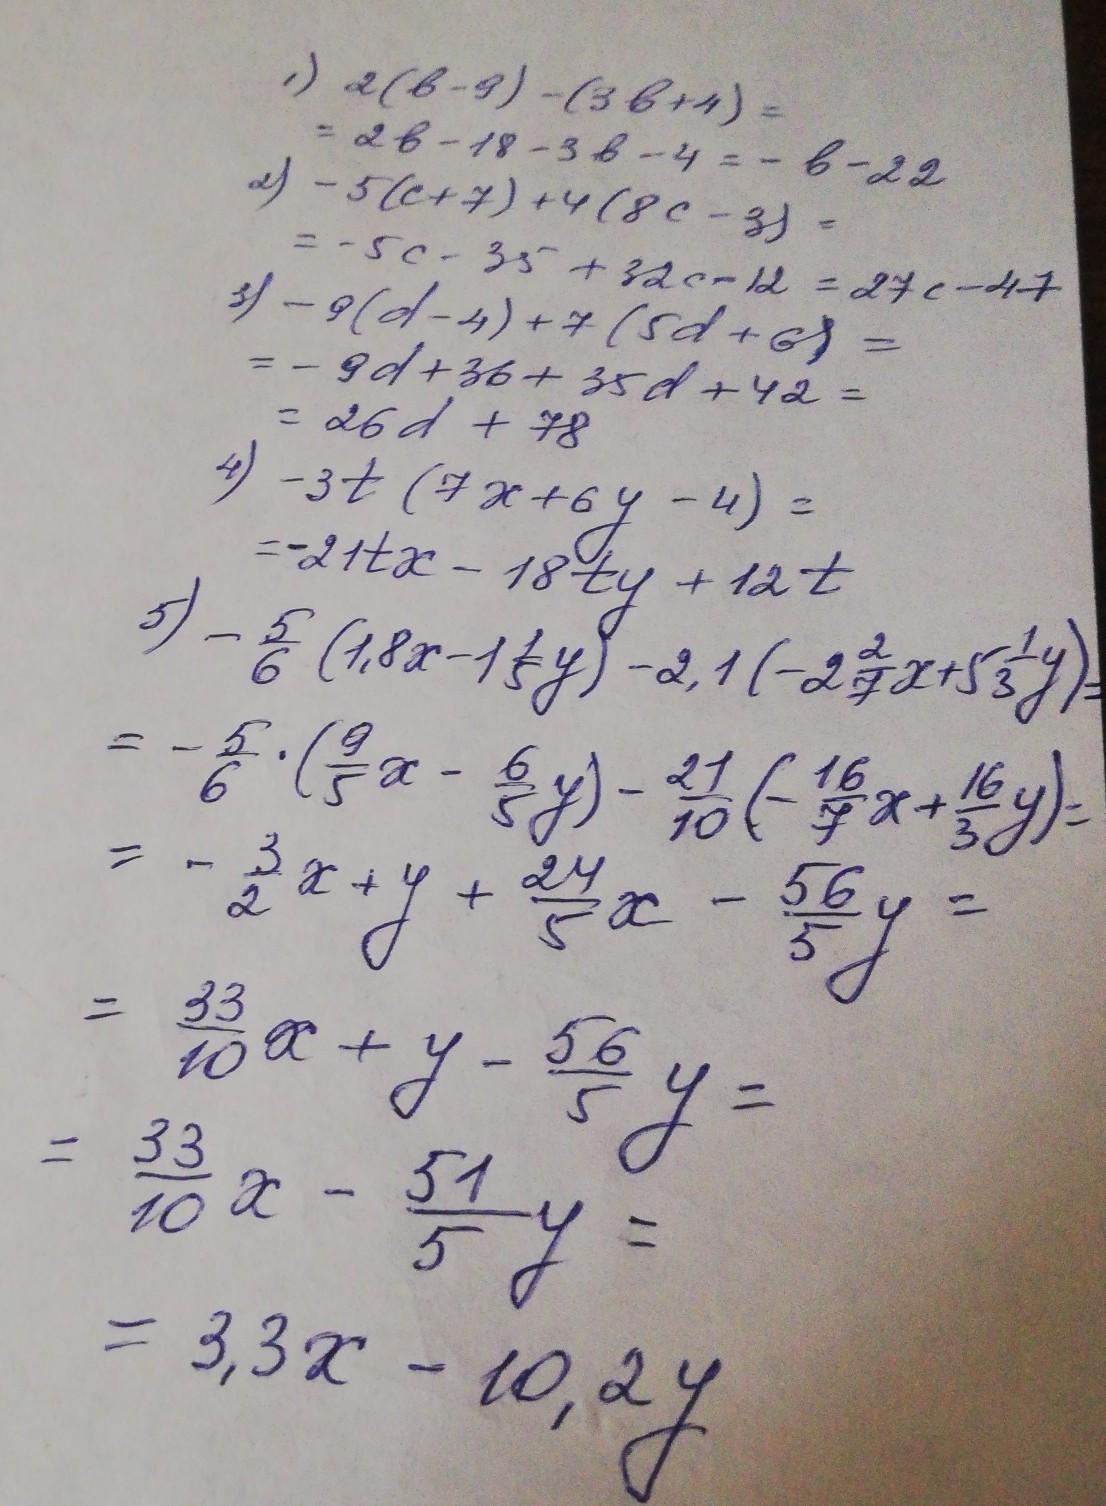 1) 2(в-9)-(3в+4)=
=2в-18-3в-4=-в-22
2) -5(c+7)+4(8c-3)=
=-5c-35+32c-12=27c-47
3) -9(d-4)+7(5d+6)=
=-9d+36+35d+42=
=26d+78
4) -3t(7x+6y-4)=
=-21tx-18ty+12t
5) -5/6(1,8x-1 1/5y)-2,1(-2 2/7x+5 1/3y)=
=-5/6·(9/5x-6/5y)-21/10(-16/7x+16/3y)=
=-3/2x+y+24/5x-56/5y=
=33/10x+y-56/5y=
=33/10x-51/5y=
=3,3x-10,2y